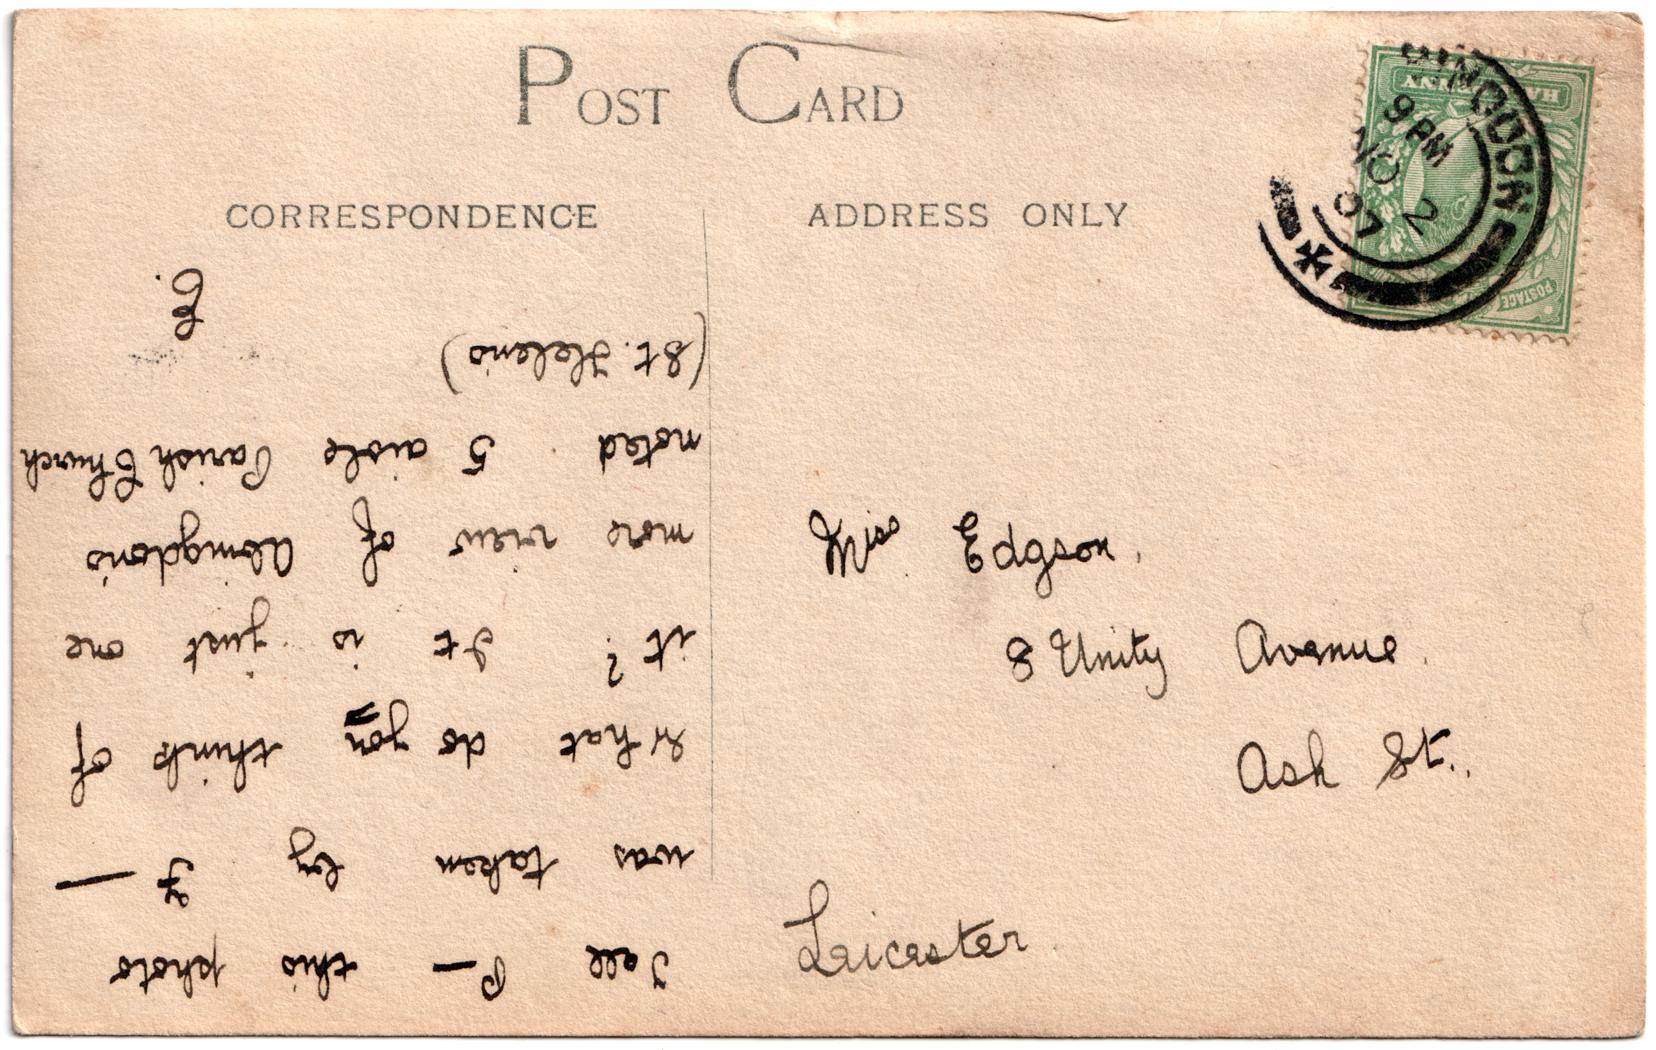 POST CARD
CORRESPONDENCE
ADDRESS ONLY
Tell P— this photo
was taken by F —
What do you think of
it? It is just one
more view of Abingdon's
noted 5 aisle Parish Church
(St. Helens)
E.
Miss Edgson,
8 Unity Avenue
Ash St.
Leicester
9 PM
NO 2
07
POSTAGE